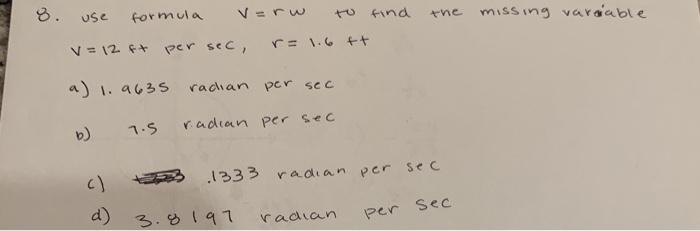 8. use formula V = rw to find the missing variable
V = 12 ft per sec, r = 1.6 ft
a) 1.9635 radian per sec
b) 7.5 radian per sec
c) .1333 radian per sec
d) 3.8197 radian per sec